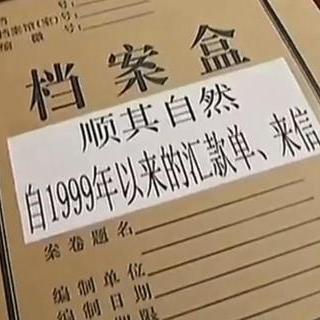 号:
档案馆(室)号:
编 号:
档案盒
顺其自然
自1999年以来的汇款单、来信
案卷题名
编制单位
编制日期
期限